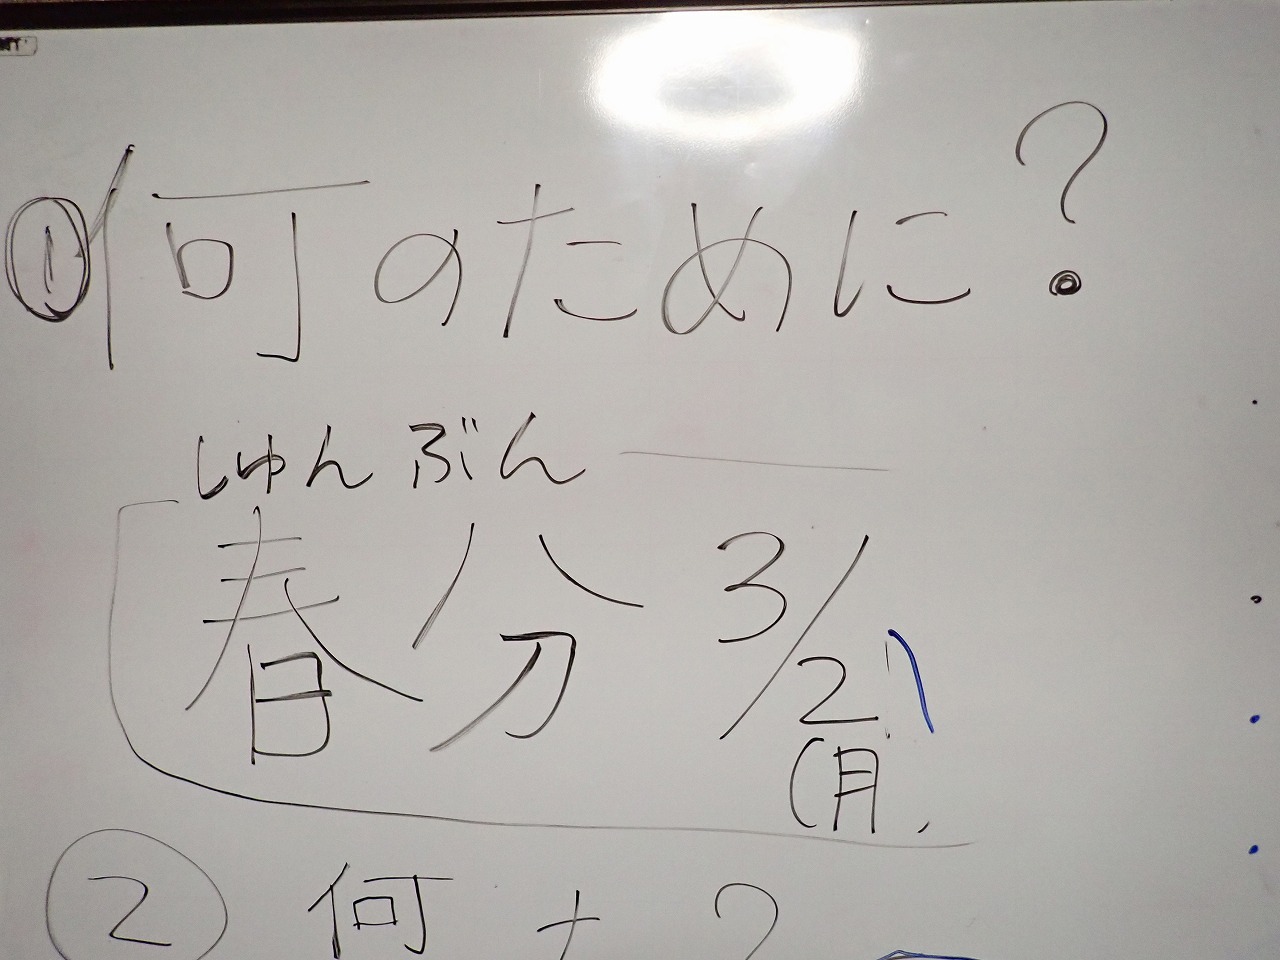 ①何のために?
しゅんぶん
春分 3/21
(月
② 何